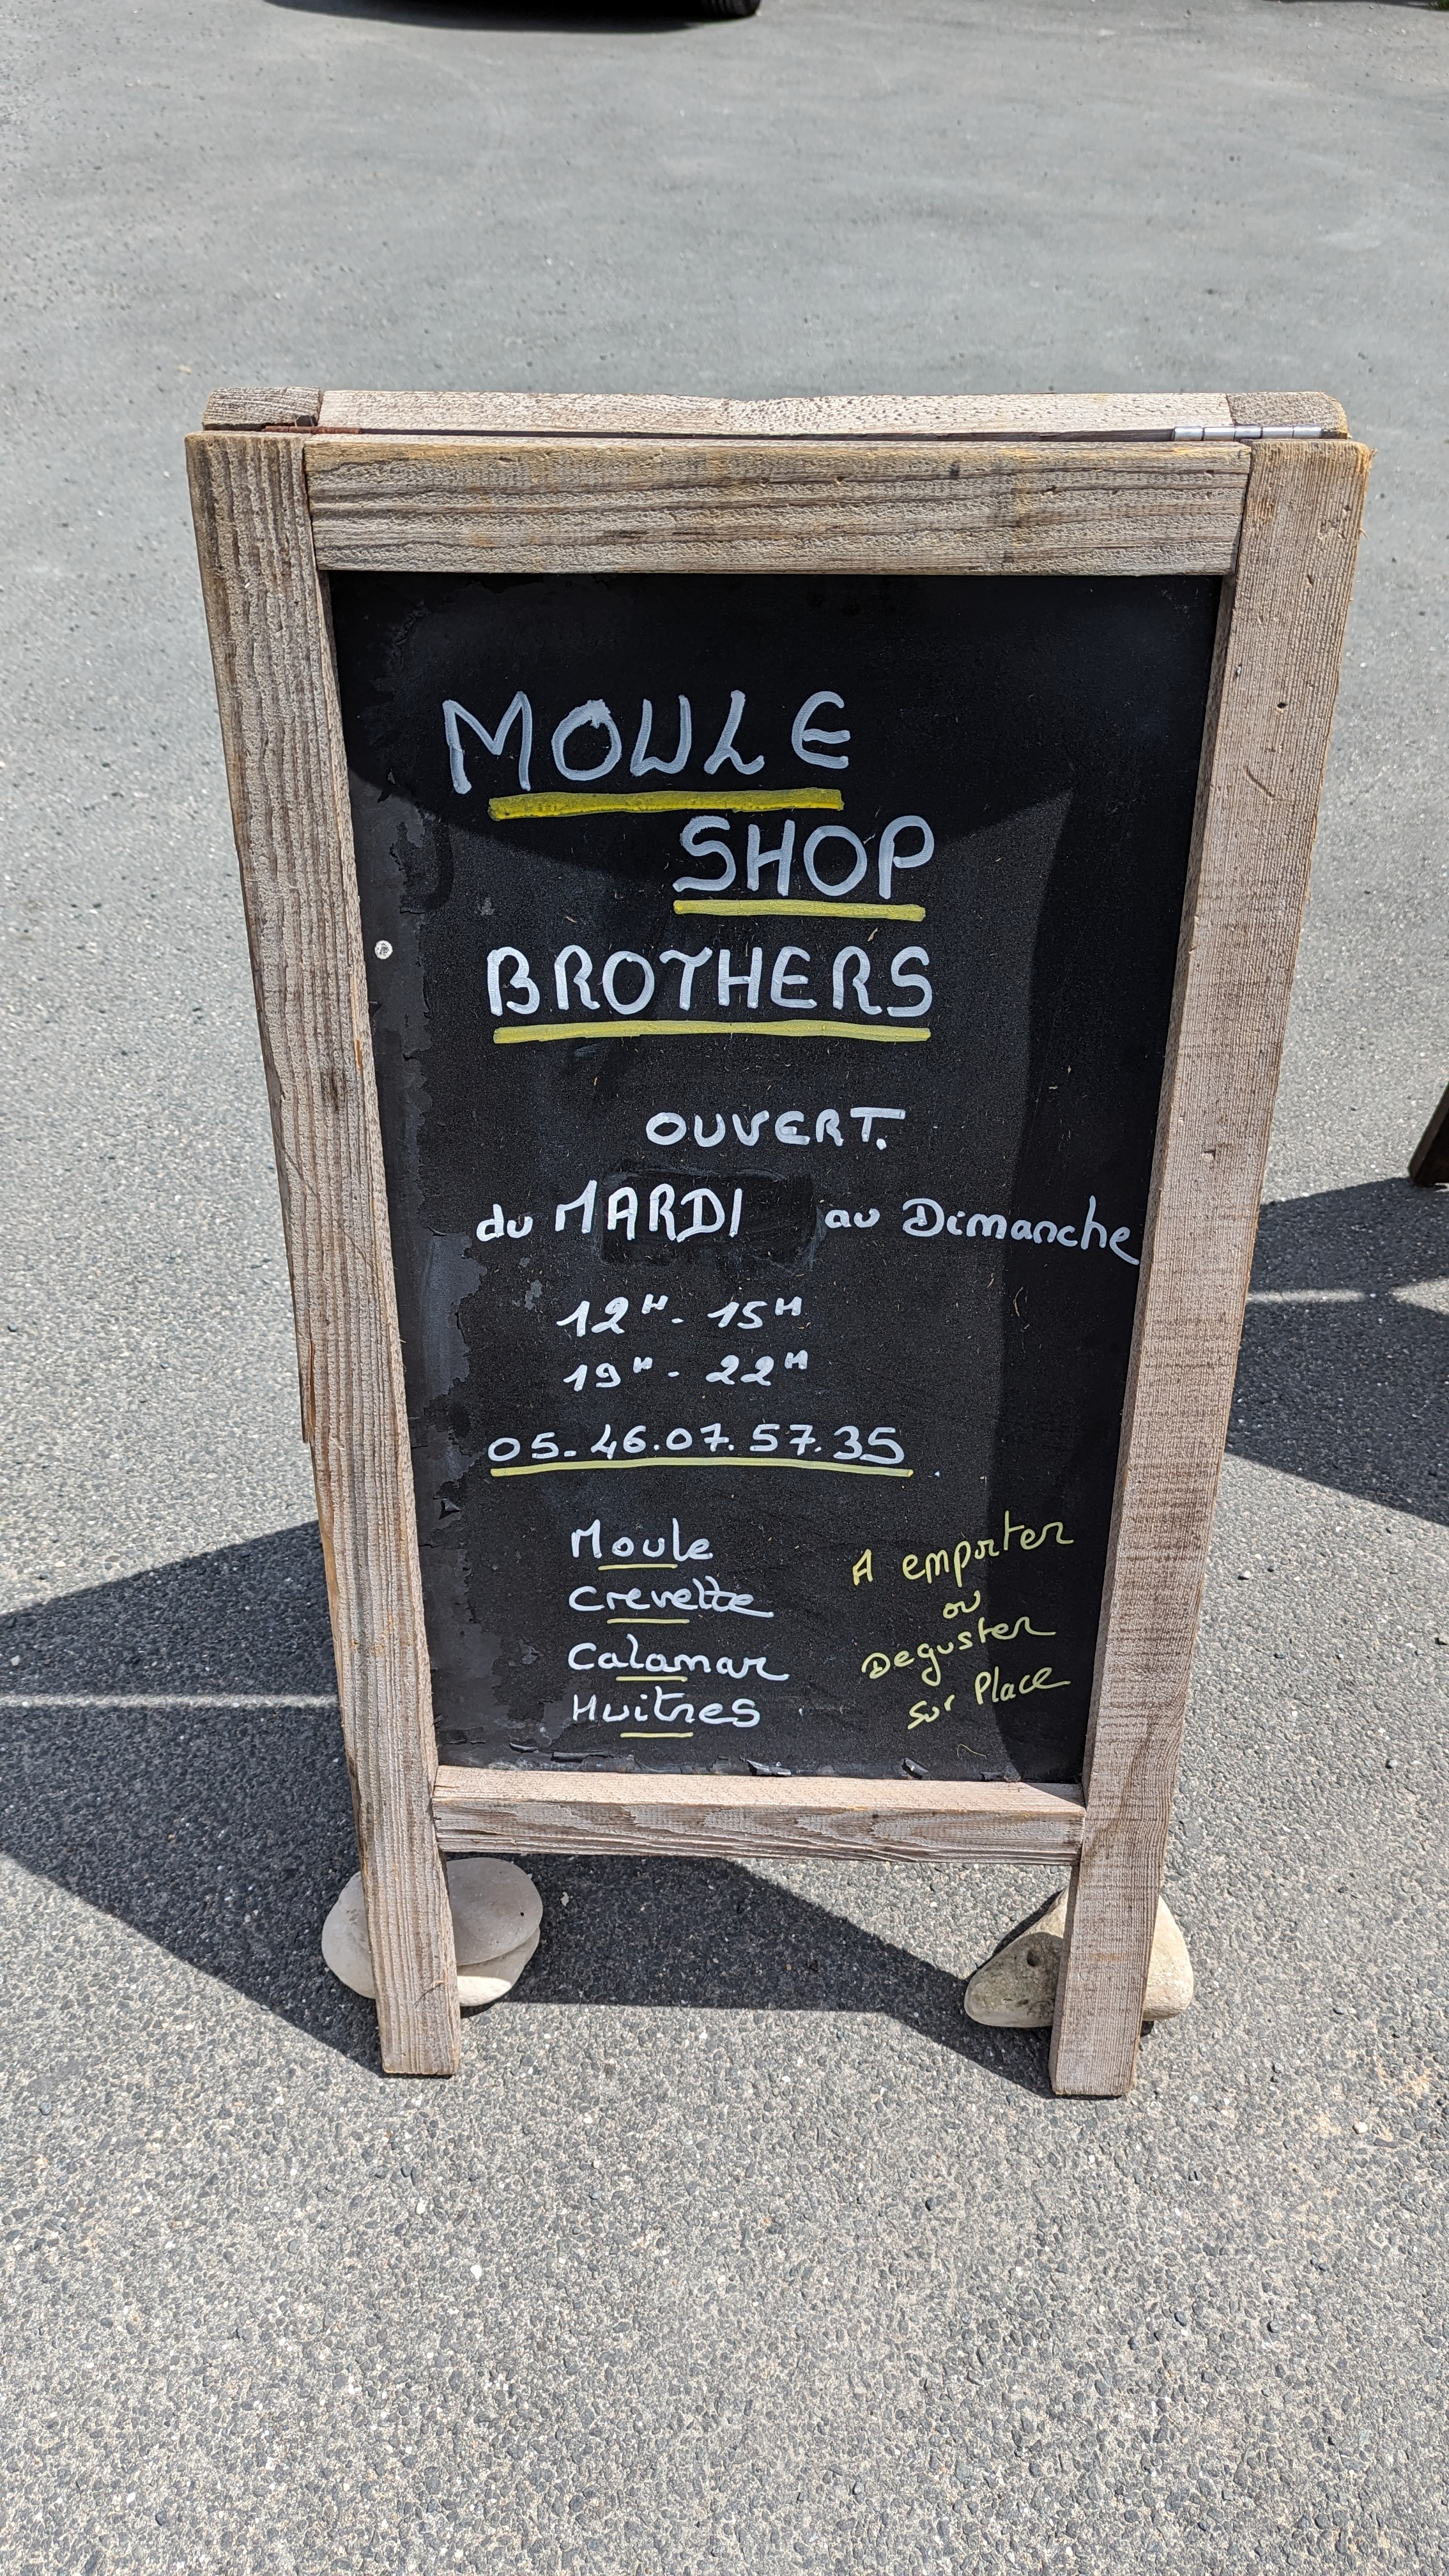 MOULE
SHOP
BROTHERS
OUVERT.
du MARDI au Dimanche
12H - 15H
19H - 22H
05-46.07.57.35
Moule
Crevette
Calamar
Huitres
A emporter
ou
Deguster
Sur Place